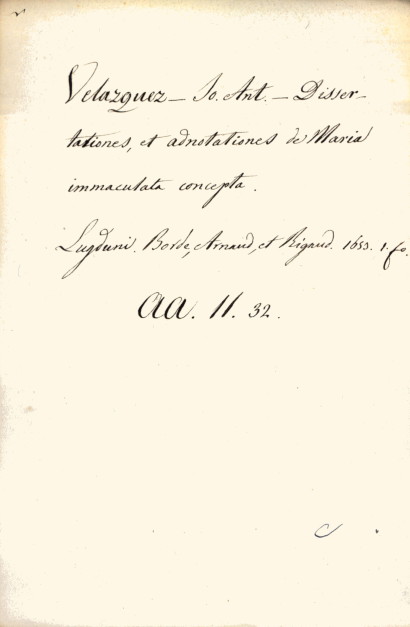 Velazquez — Jo. Ant. — Disser-
tationes, et adnotationes de Maria
immaculata concepta.
Lugduni. Borde, Arnaud, et Rigaud. 1653. 1. fo.
aa. 11. 32.
C